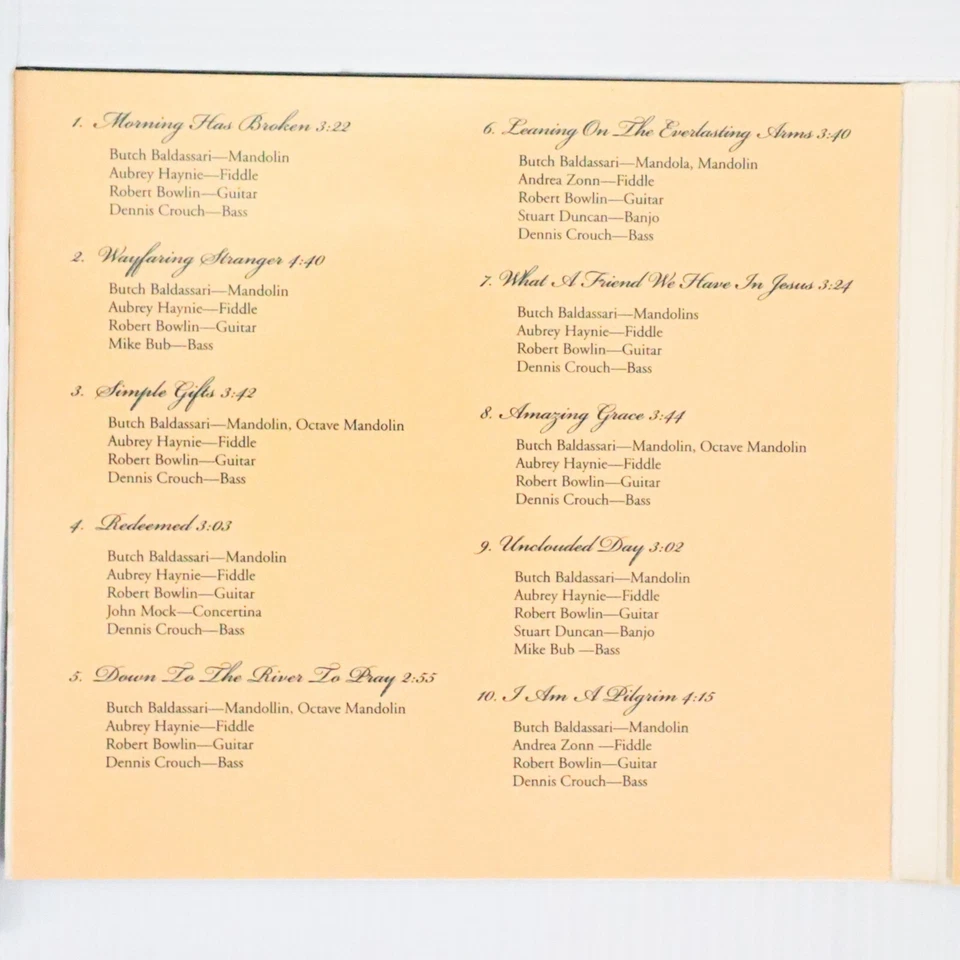 1. Morning Has Broken 3:22
Butch Baldassari—Mandolin
Aubrey Haynie—Fiddle
Robert Bowlin—Guitar
Dennis Crouch—Bass
2. Wayfaring Stranger 4:40
Butch Baldassari—Mandolin
Aubrey Haynie—Fiddle
Robert Bowlin—Guitar
Mike Bub—Bass
3. Simple Gifts 3:42
Butch Baldassari—Mandolin, Octave Mandolin
Aubrey Haynie—Fiddle
Robert Bowlin—Guitar
Dennis Crouch—Bass
4. Redeemed 3:03
Butch Baldassari—Mandolin
Aubrey Haynie—Fiddle
Robert Bowlin—Guitar
John Mock—Concertina
Dennis Crouch—Bass
5. Down To The River To Pray 2:55
Butch Baldassari—Mandollin, Octave Mandolin
Aubrey Haynie—Fiddle
Robert Bowlin—Guitar
Dennis Crouch—Bass
6. Leaning On The Everlasting Arms 3:40
Butch Baldassari—Mandola, Mandolin
Andrea Zonn—Fiddle
Robert Bowlin—Guitar
Stuart Duncan—Banjo
Dennis Crouch—Bass
7. What A Friend We Have In Jesus 3:24
Butch Baldassari—Mandolins
Aubrey Haynie—Fiddle
Robert Bowlin—Guitar
Dennis Crouch—Bass
8. Amazing Grace 3:44
Butch Baldassari—Mandolin, Octave Mandolin
Aubrey Haynie—Fiddle
Robert Bowlin—Guitar
Dennis Crouch—Bass
9. Unclouded Day 3:02
Butch Baldassari—Mandolin
Aubrey Haynie—Fiddle
Robert Bowlin—Guitar
Stuart Duncan—Banjo
Mike Bub —Bass
10. I Am A Pilgrim 4:15
Butch Baldassari—Mandolin
Andrea Zonn —Fiddle
Robert Bowlin—Guitar
Dennis Crouch—Bass